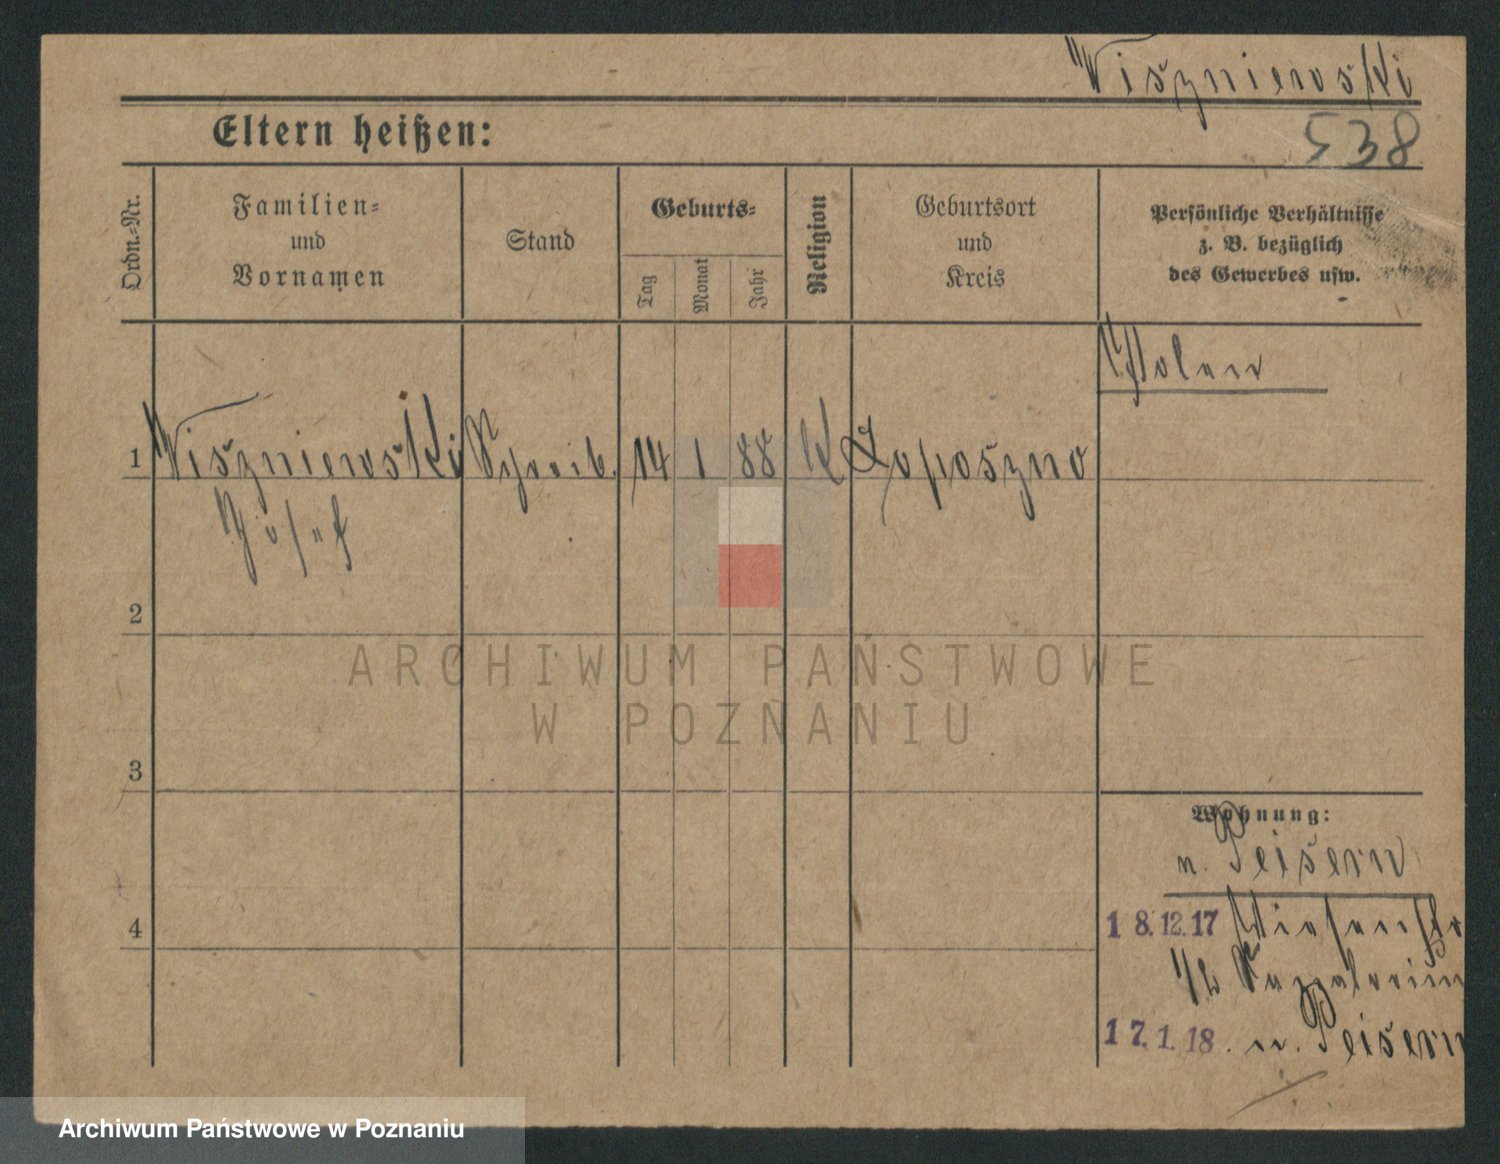 Wiszniewski
Eltern heißen:
538
Ordn.-Nr.
Familien-
und
Vornamen
Stand
Geburts-
Tag
Monat
Jahr
Religion
Geburtsort
und
Kreis
Persönliche Verhältnisse
z. B. bezüglich
des Gewerbes usw.
Polen
1 Wiszniewski Schreib. 14 1 88 K Zoposzno
Josef
2
ARCHIWUM PAŃSTWOWE
W POZNANIU
3
Wohnung:
n. Peisern
4
18.12.17 Wiesenstr
1/2
17.1.18. n. Peisern
Archiwum Państwowe w Poznaniu